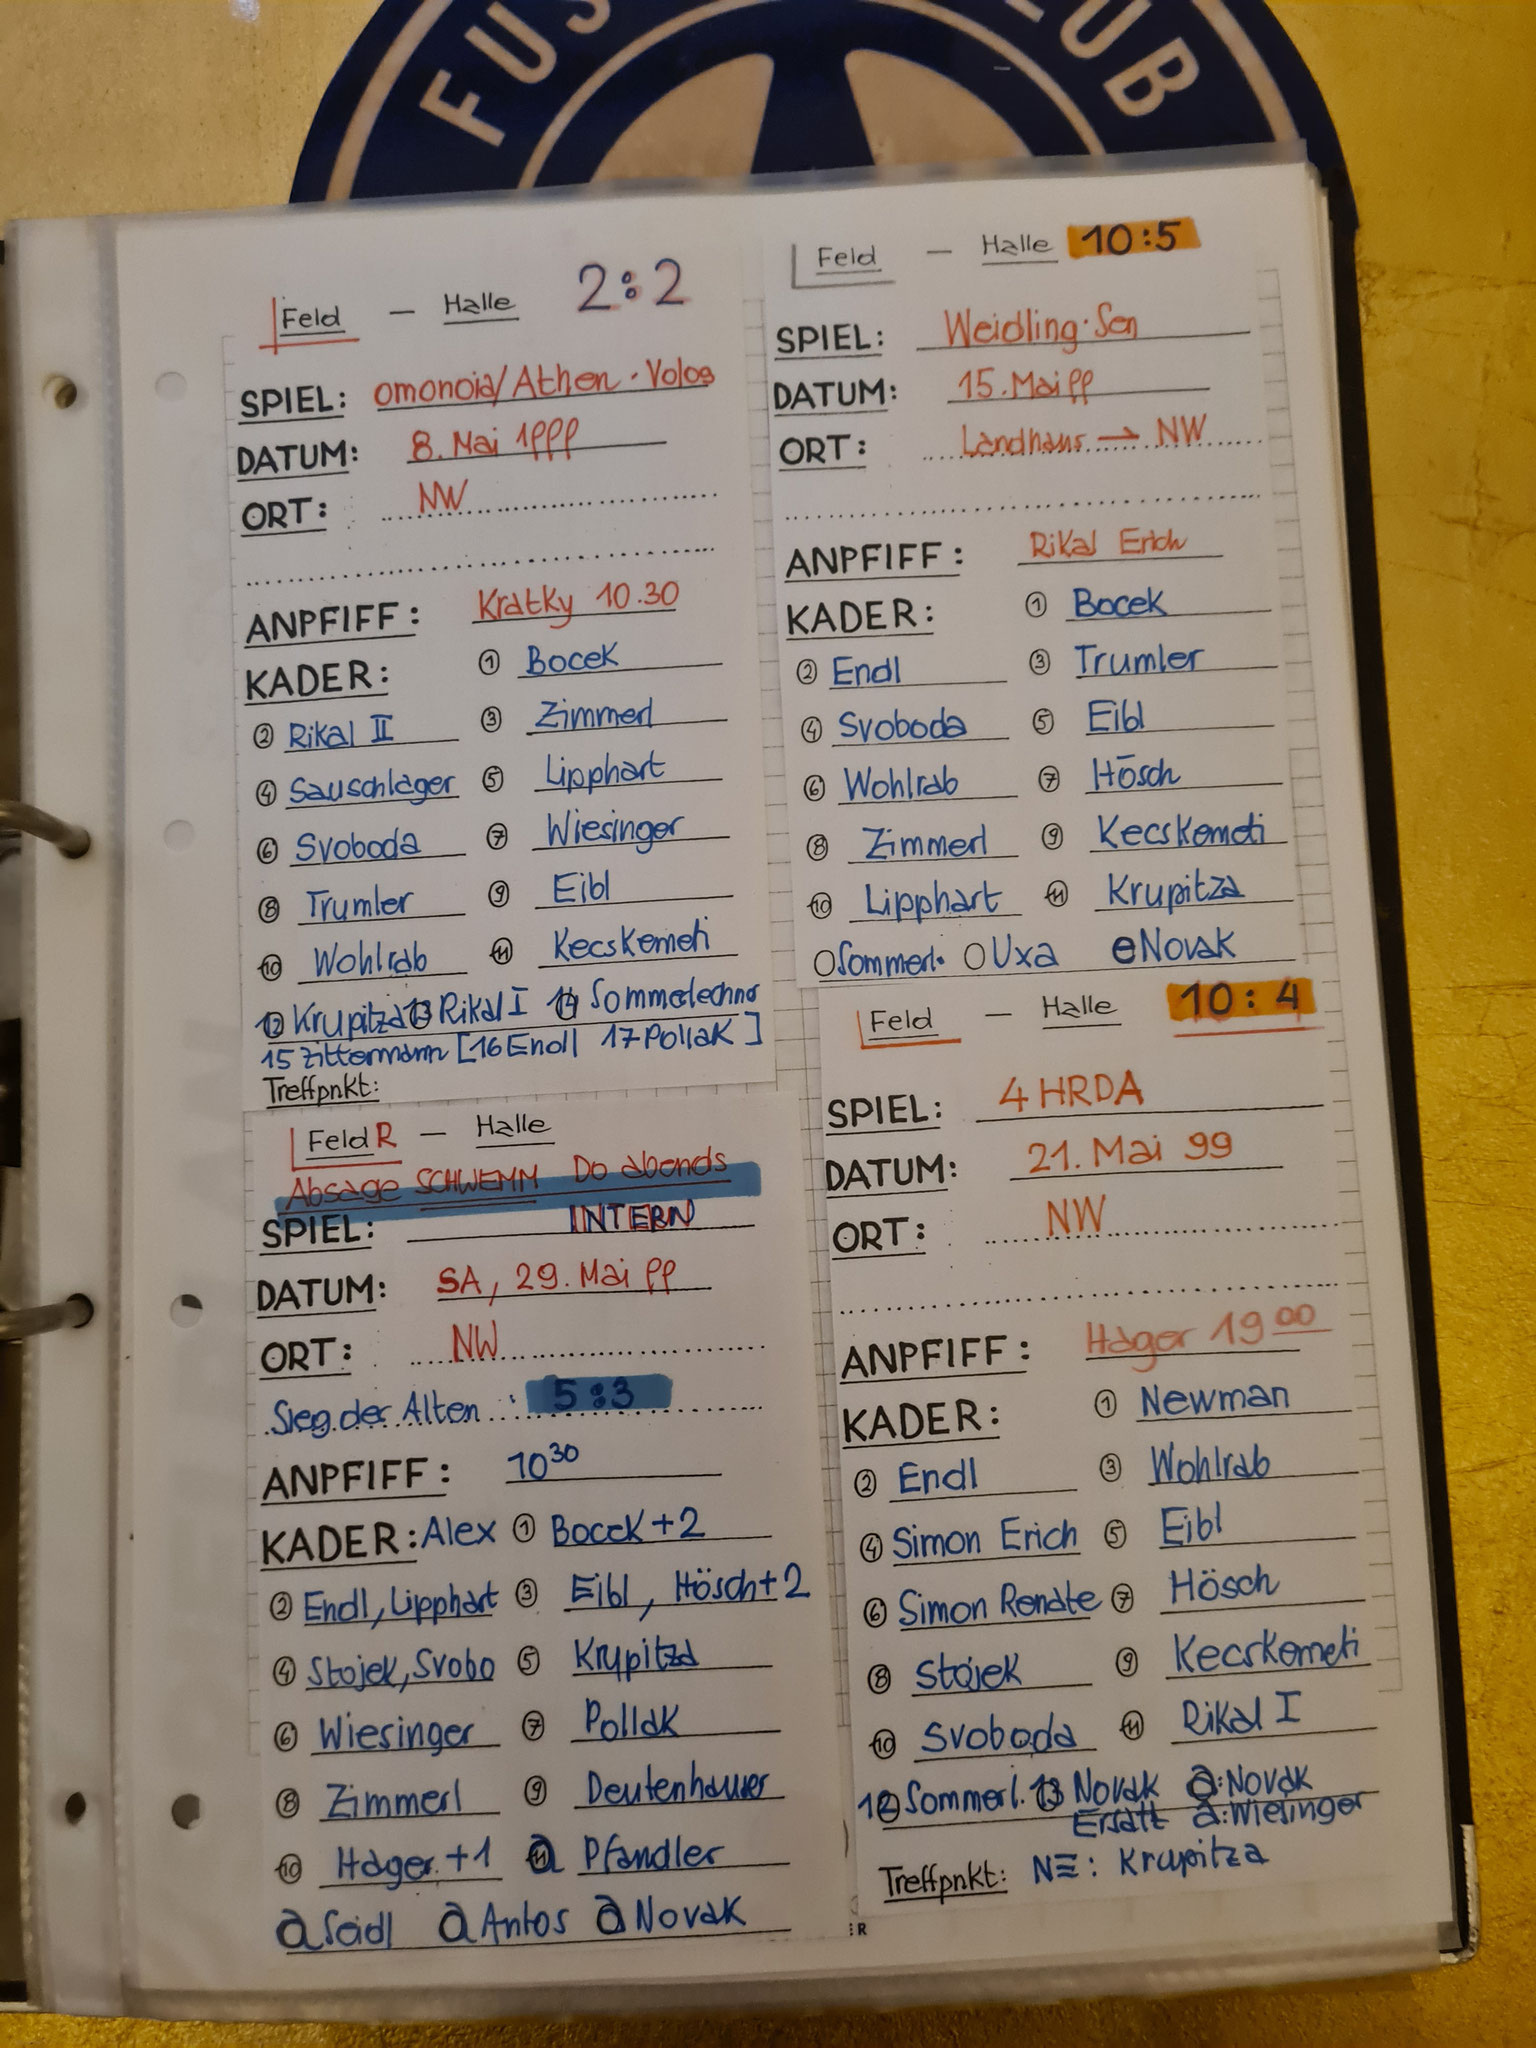 FUS LUB
Feld — Halle 2:2
SPIEL: omonoia/Athen · Volos
DATUM: 8. Mai 1999
ORT: NW
ANPFIFF: Kratky 10.30
KADER: ① Bocek
② Rikal II ③ Zimmerl
④ Sauschlager ⑤ Lipphart
⑥ Svoboda ⑦ Wiesinger
⑧ Trumler ⑨ Eibl
⑩ Wohlrab ⑪ Kecskemeti
⑫ Krupitza ⑬ Rikal I ⑭ Sommerlechner
15 Zittermann [16 Endl 17 Pollak]
Treffpnkt:
Feld — Halle 10:5
SPIEL: Weidling·Sen
DATUM: 15. Mai 99
ORT: Landhaus → NW
ANPFIFF: Rikal Erich
KADER: ① Bocek
② Endl ③ Trumler
④ Svoboda ⑤ Eibl
⑥ Wohlrab ⑦ Hösch
⑧ Zimmerl ⑨ Kecskemeti
⑩ Lipphart ⑪ Krupitza
O Sommerl. O Uxa e Novak
Feld R — Halle
Absage SCHWEMM Do abends
SPIEL: INTERN
DATUM: SA, 29. Mai 99
ORT: NW
Sieg der Alten : 5:3
ANPFIFF: 10 30
KADER: Alex ① Bocek+2
② Endl, Lipphart ③ Eibl, Hösch+2
④ Stojek, Svobo ⑤ Krupitza
⑥ Wiesinger ⑦ Pollak
⑧ Zimmerl ⑨ Deutenhauser
⑩ Hager +1 ⑪ a Pfandler
a Seidl a Antos a Novak
Feld — Halle 10:4
SPIEL: 4 HRDA
DATUM: 21. Mai 99
ORT: NW
ANPFIFF: Hager 19 00
KADER: ① Newman
② Endl ③ Wohlrab
④ Simon Erich ⑤ Eibl
⑥ Simon Renate ⑦ Hösch
⑧ Stojek ⑨ Kecskemeti
⑩ Svoboda ⑪ Rikal I
12 Sommerl. 13 Novak a: Novak
Ersatz a: Wiesinger
Treffpnkt: NE: Krupitza
:R